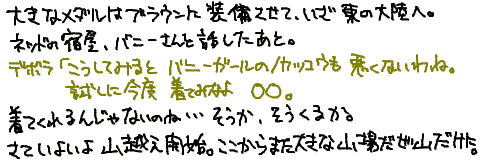 大きなメダルはブラウンに装備させて、いざ東の大陸へ。
ネッドの宿屋、バニーさんと話したあと。
デボラ「こうしてみると バニーガールのカッコウも 悪くないわね。
試しに今度 着てみなよ ○○。
着てくれるんじゃないのね… そうか、そうくるか。
さていよいよ山越え開始。ここからまた大きな山場だぜ山だけに。